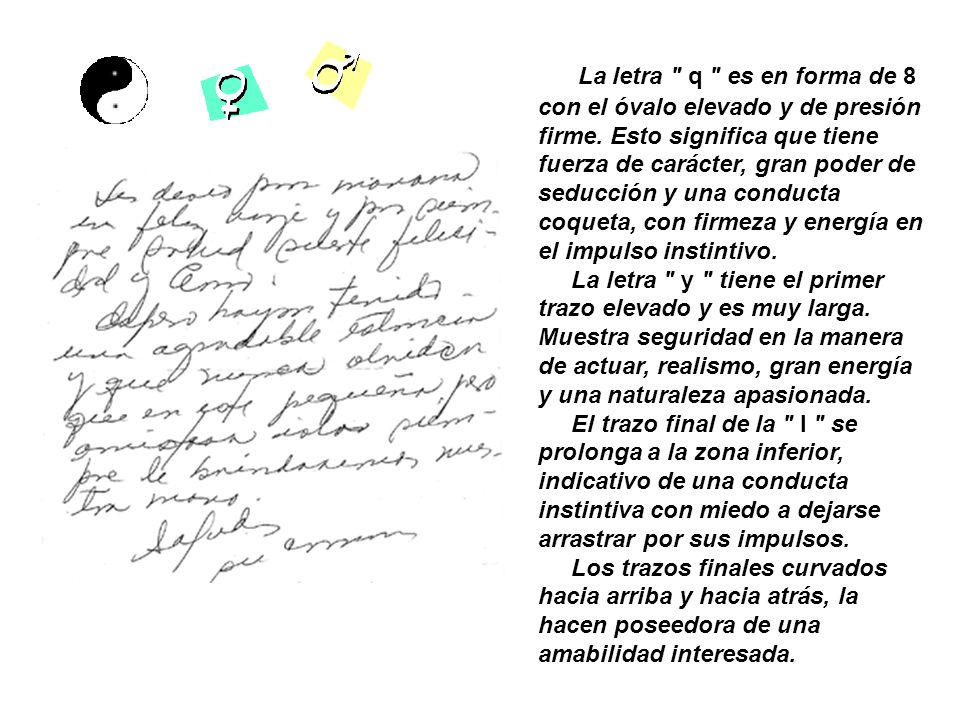 Les deseo por mañana
un feliz viaje y por siem-
pre salud suerte felici-
dad y Amor.
Espero hayan tenido
una agradable estancia
y que nunca olviden
que en esta pequeña, pero
isla siem-
pre le brindaremos nues-
tra mano.
Saludos
su
La letra " q " es en forma de 8
con el óvalo elevado y de presión
firme. Esto significa que tiene
fuerza de carácter, gran poder de
seducción y una conducta
coqueta, con firmeza y energía en
el impulso instintivo.
La letra " y " tiene el primer
trazo elevado y es muy larga.
Muestra seguridad en la manera
de actuar, realismo, gran energía
y una naturaleza apasionada.
El trazo final de la " l " se
prolonga a la zona inferior,
indicativo de una conducta
instintiva con miedo a dejarse
arrastrar por sus impulsos.
Los trazos finales curvados
hacia arriba y hacia atrás, la
hacen poseedora de una
amabilidad interesada.